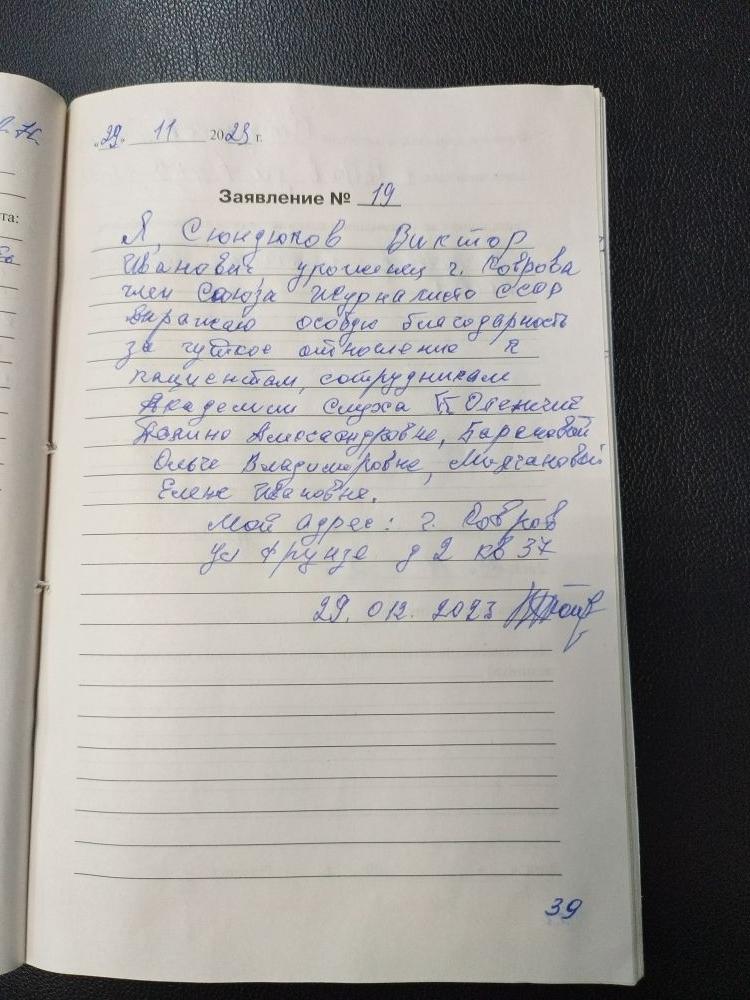 "29" 11 2023 г.
Заявление № 19
Я, Сюндюков Виктор
Иванович уроженец г. Коврова
член Союза Журналисто СССР
выражаю особую благодарность
за чуткое отношение к
пациентам, сотрудникам
Академии слуха
Александровне, Барановой
Ольге Владимировне, Молчановой
Елене Ивановне.
Мой адрес: г. Ковров
ул Фрунзе д 2 кв 37
29. 012. 2023
39
та: